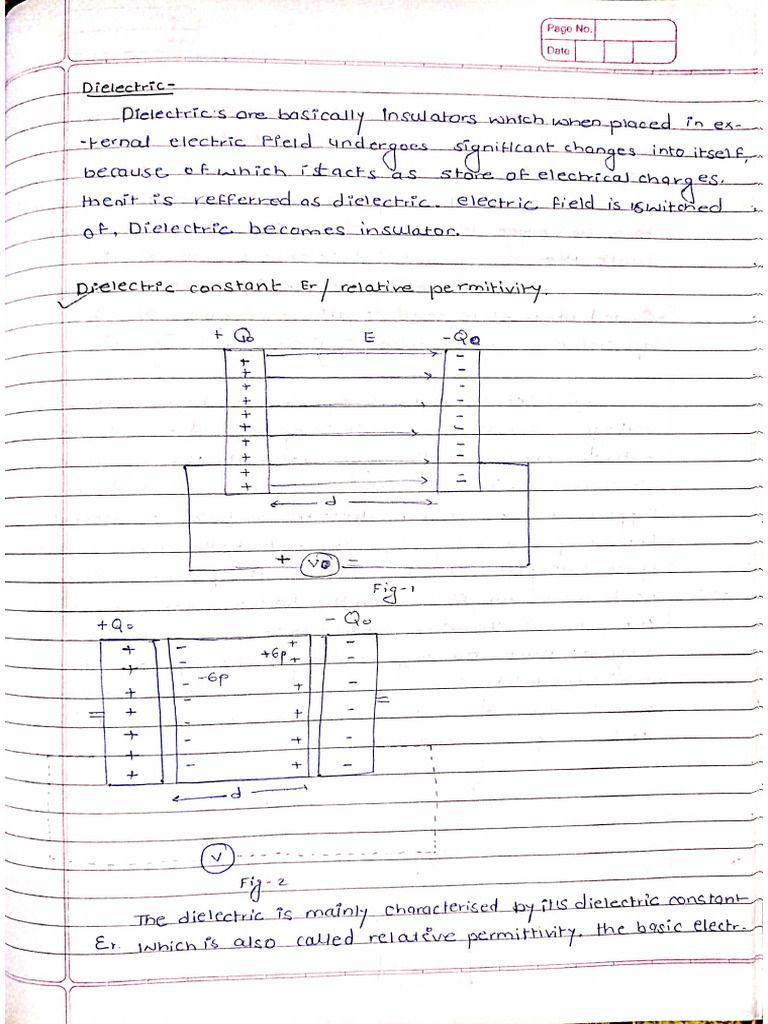 Page No.
Date
Dielectric-
Dielectric's are basically insulators which when placed in ex-
-ternal electric field undergoes significant changes into itself,
because of which it acts as store of electrical charges.
then it is refferred as dielectric. electric field is switched
of, Dielectric becomes insulator.
Dielectric constant Er/ relative permitivity.
+ Q0 E -Q0
+ -
+ -
+ -
+ -
+ -
+ -
+ -
+ -
+ =
d
+ V0 =
Fig-1
+Q0 - Q0
+ - + -
+ - +6p + -
- -6p
+ - + -
= + - + - =
+ - + -
+ - + -
+
d
V
Fig-2
The dielectric is mainly characterised by its dielectric constant
Er. Which is also called relative permittivity. the basic electr.